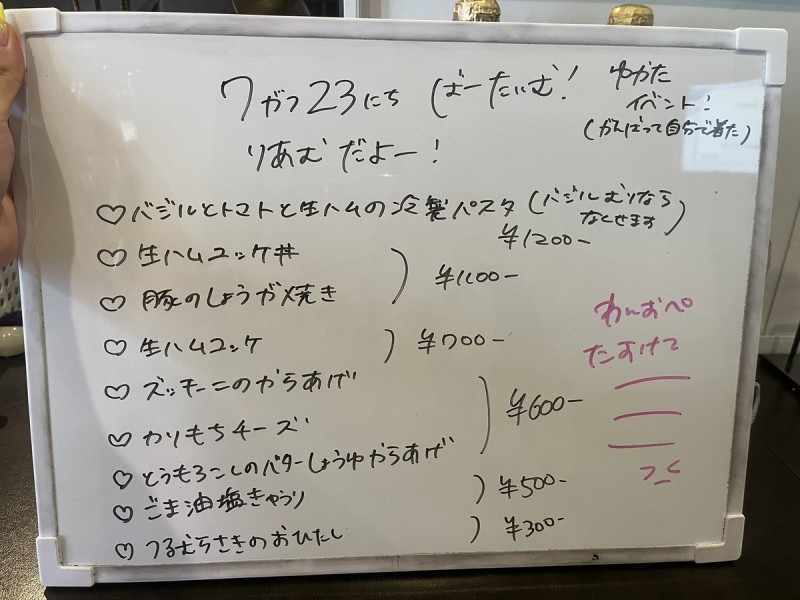 7がつ23にち ばーたいむ!
りあむだよー!
ゆかた
イベント!
(がんばって自分で着た)
♡バジルとトマトと生ハムの冷製パスタ (バジルむりなら
なくせます)
¥1200-
♡生ハムユッケ丼
♡豚のしょうが焼き
¥1100-
♡生ハムユッケ ¥700-
♡ズッキーニのからあげ
♡かりもちチーズ
♡とうもろこしのバターしょうゆからあげ
¥600-
♡ごま油塩きゅうり ¥500-
♡つるむらさきのおひたし ¥300-
わんおぺ
たすけて